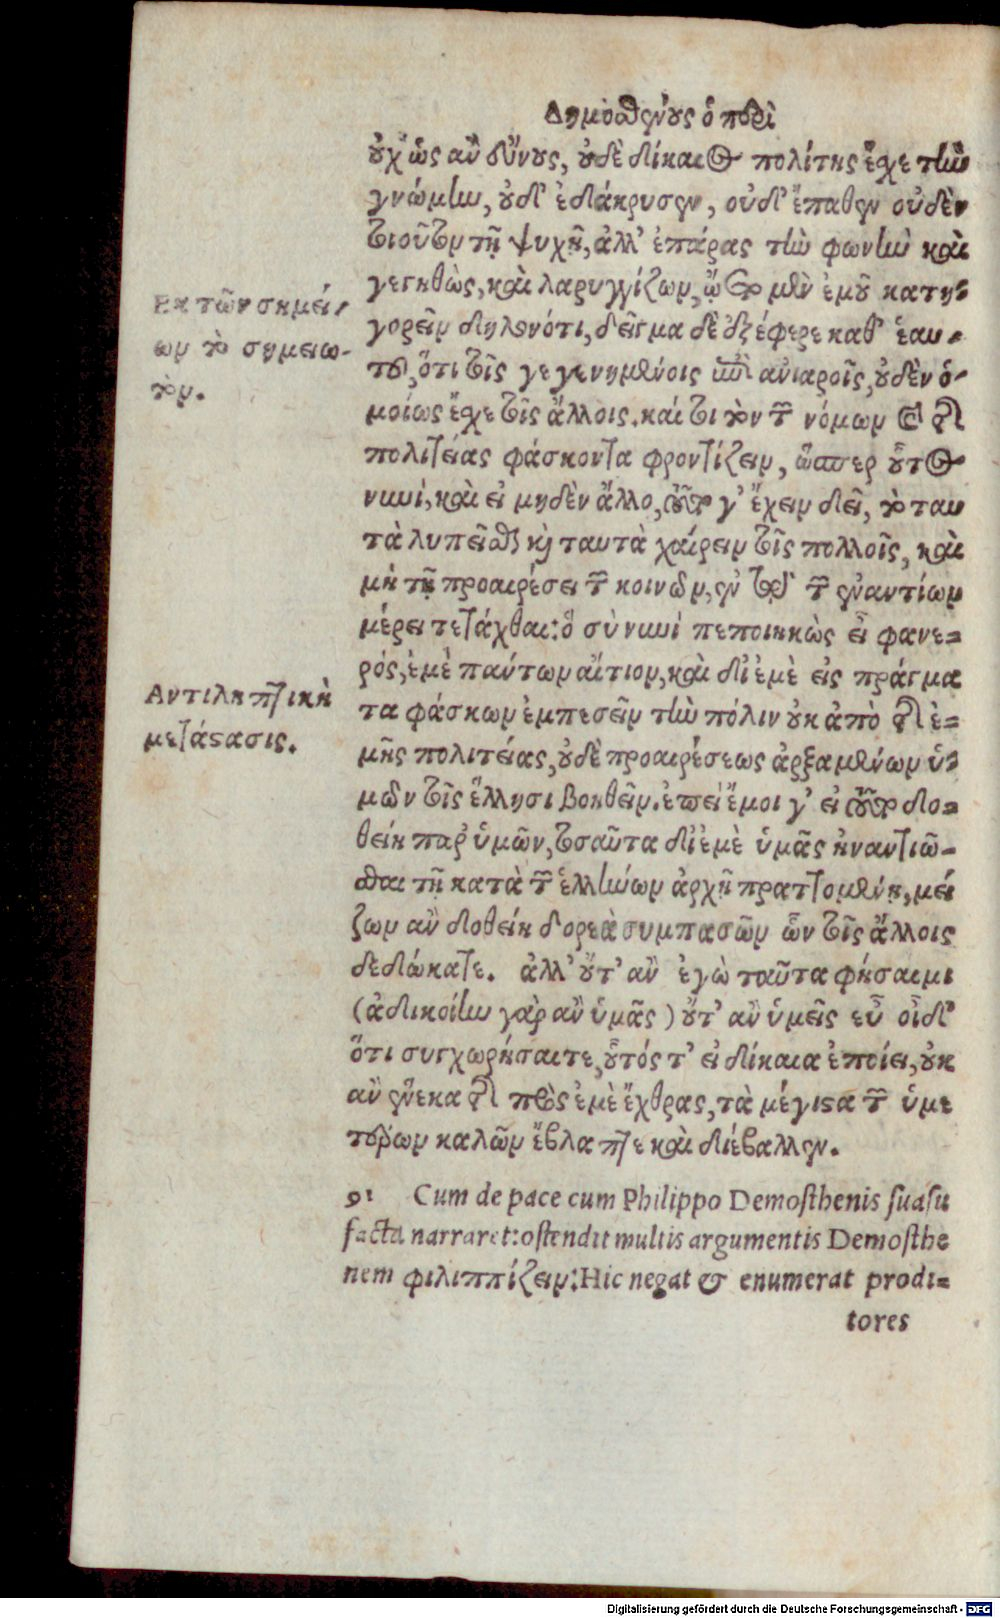 Δημοσθένους ὁ περὶ
οὐχ ὡς ἂν εὔνους, οὐδὲ δίκαιος πολίτης ἔσχε τὴν
γνώμην, οὐδ' ἐδάκρυσεν, οὐδ' ἔπαθεν οὐδὲν
τοιοῦτον τῇ ψυχῇ, ἀλλ' ἐπάρας τὴν φωνὴν καὶ
γεγηθὼς, καὶ λαρυγγίζων, ᾤετο μὲν ἐμοῦ κατη-
Εκ τῶν σημεί-
γορεῖν δηλονότι, δεῖγμα δὲ ἐξέφερε καθ' ἑαυ-
ων τὸ σημειω-
τοῦ, ὅτι τοῖς γεγενημένοις ἐπὶ ἀνιαροῖς, οὐδὲν ὁ-
τὸν.
μοίως ἔσχε τοῖς ἄλλοις. καί τοι τὸν τῶν νόμων καὶ τῆς
πολιτείας φάσκοντα φροντίζειν, ὥσπερ οὗτος
νυνὶ, καὶ εἰ μηδὲν ἄλλο, τοῦτο γ' ἔχειν δεῖ, τὸ ταυ
τὰ λυπεῖσθαι καὶ ταυτὰ χαίρειν τοῖς πολλοῖς, καὶ
μὴ τῇ προαιρέσει τῶν κοινῶν, ἐν τῷ τῶν ἐναντίων
μέρει τετάχθαι: ὃ σὺ νυνὶ πεποιηκὼς εἶ φανε-
ρός, ἐμὲ πάντων αἴτιον, καὶ δι' ἐμὲ εἰς πράγμα
Αντιληπτικὴ
τα φάσκων ἐμπεσεῖν τὴν πόλιν οὐκ ἀπὸ τῆς ἐ-
μετάστασις.
μῆς πολιτείας, οὐδὲ προαιρέσεως ἀρξαμένων ὑ-
μῶν τοῖς ἕλλησι βοηθεῖν. ἐπεὶ ἔμοι γ' εἰ τοῦτο δο-
θείη παρ' ὑμῶν, τοσαῦτα δι' ἐμὲ ὑμᾶς ἠναντιῶ-
σθαι τῇ κατὰ τῶν ἑλλήνων ἀρχῇ πραττομένῃ, μεί
ζων ἂν δοθείη δορεὰ συμπασῶν ὧν τοῖς ἄλλοις
δεδώκατε. ἀλλ' οὔτ' ἂν ἐγὼ ταῦτα φήσαιμι
(ἀδικοίην γὰρ ἂν ὑμᾶς) οὔτ' ἂν ὑμεῖς εὖ οἶδ'
ὅτι συγχωρήσαιτε, οὗτός τ' εἰ δίκαια ἐποίει, οὐκ
ἂν ἕνεκα τῆς πρὸς ἐμὲ ἔχθρας, τὰ μέγιστα τῶν ὑμε
τέρων καλῶν ἔβλαπτε καὶ διέβαλλεν.
91 Cum de pace cum Philippo Demosthenis suasu
facta narraret: ostendit multis argumentis Demosthe
nem φιλιππίζειν: Hic negat & enumerat prodi-
tores
Digitalisierung gefördert durch die Deutsche Forschungsgemeinschaft - DFG